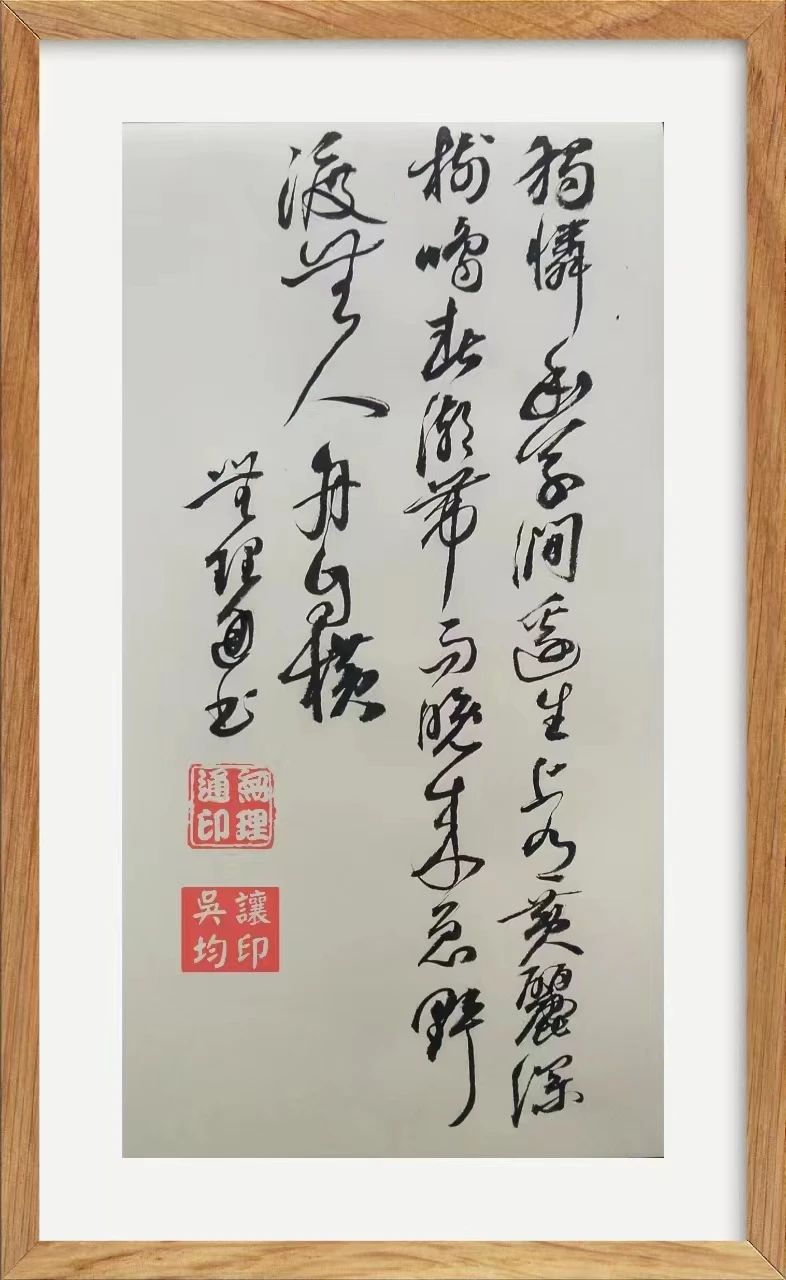 獨憐幽草澗邊生上有黃麗深
樹鳴春潮帶雨晚來急野
渡無人舟自橫
無理通书
無理
通印
讓印
吳均